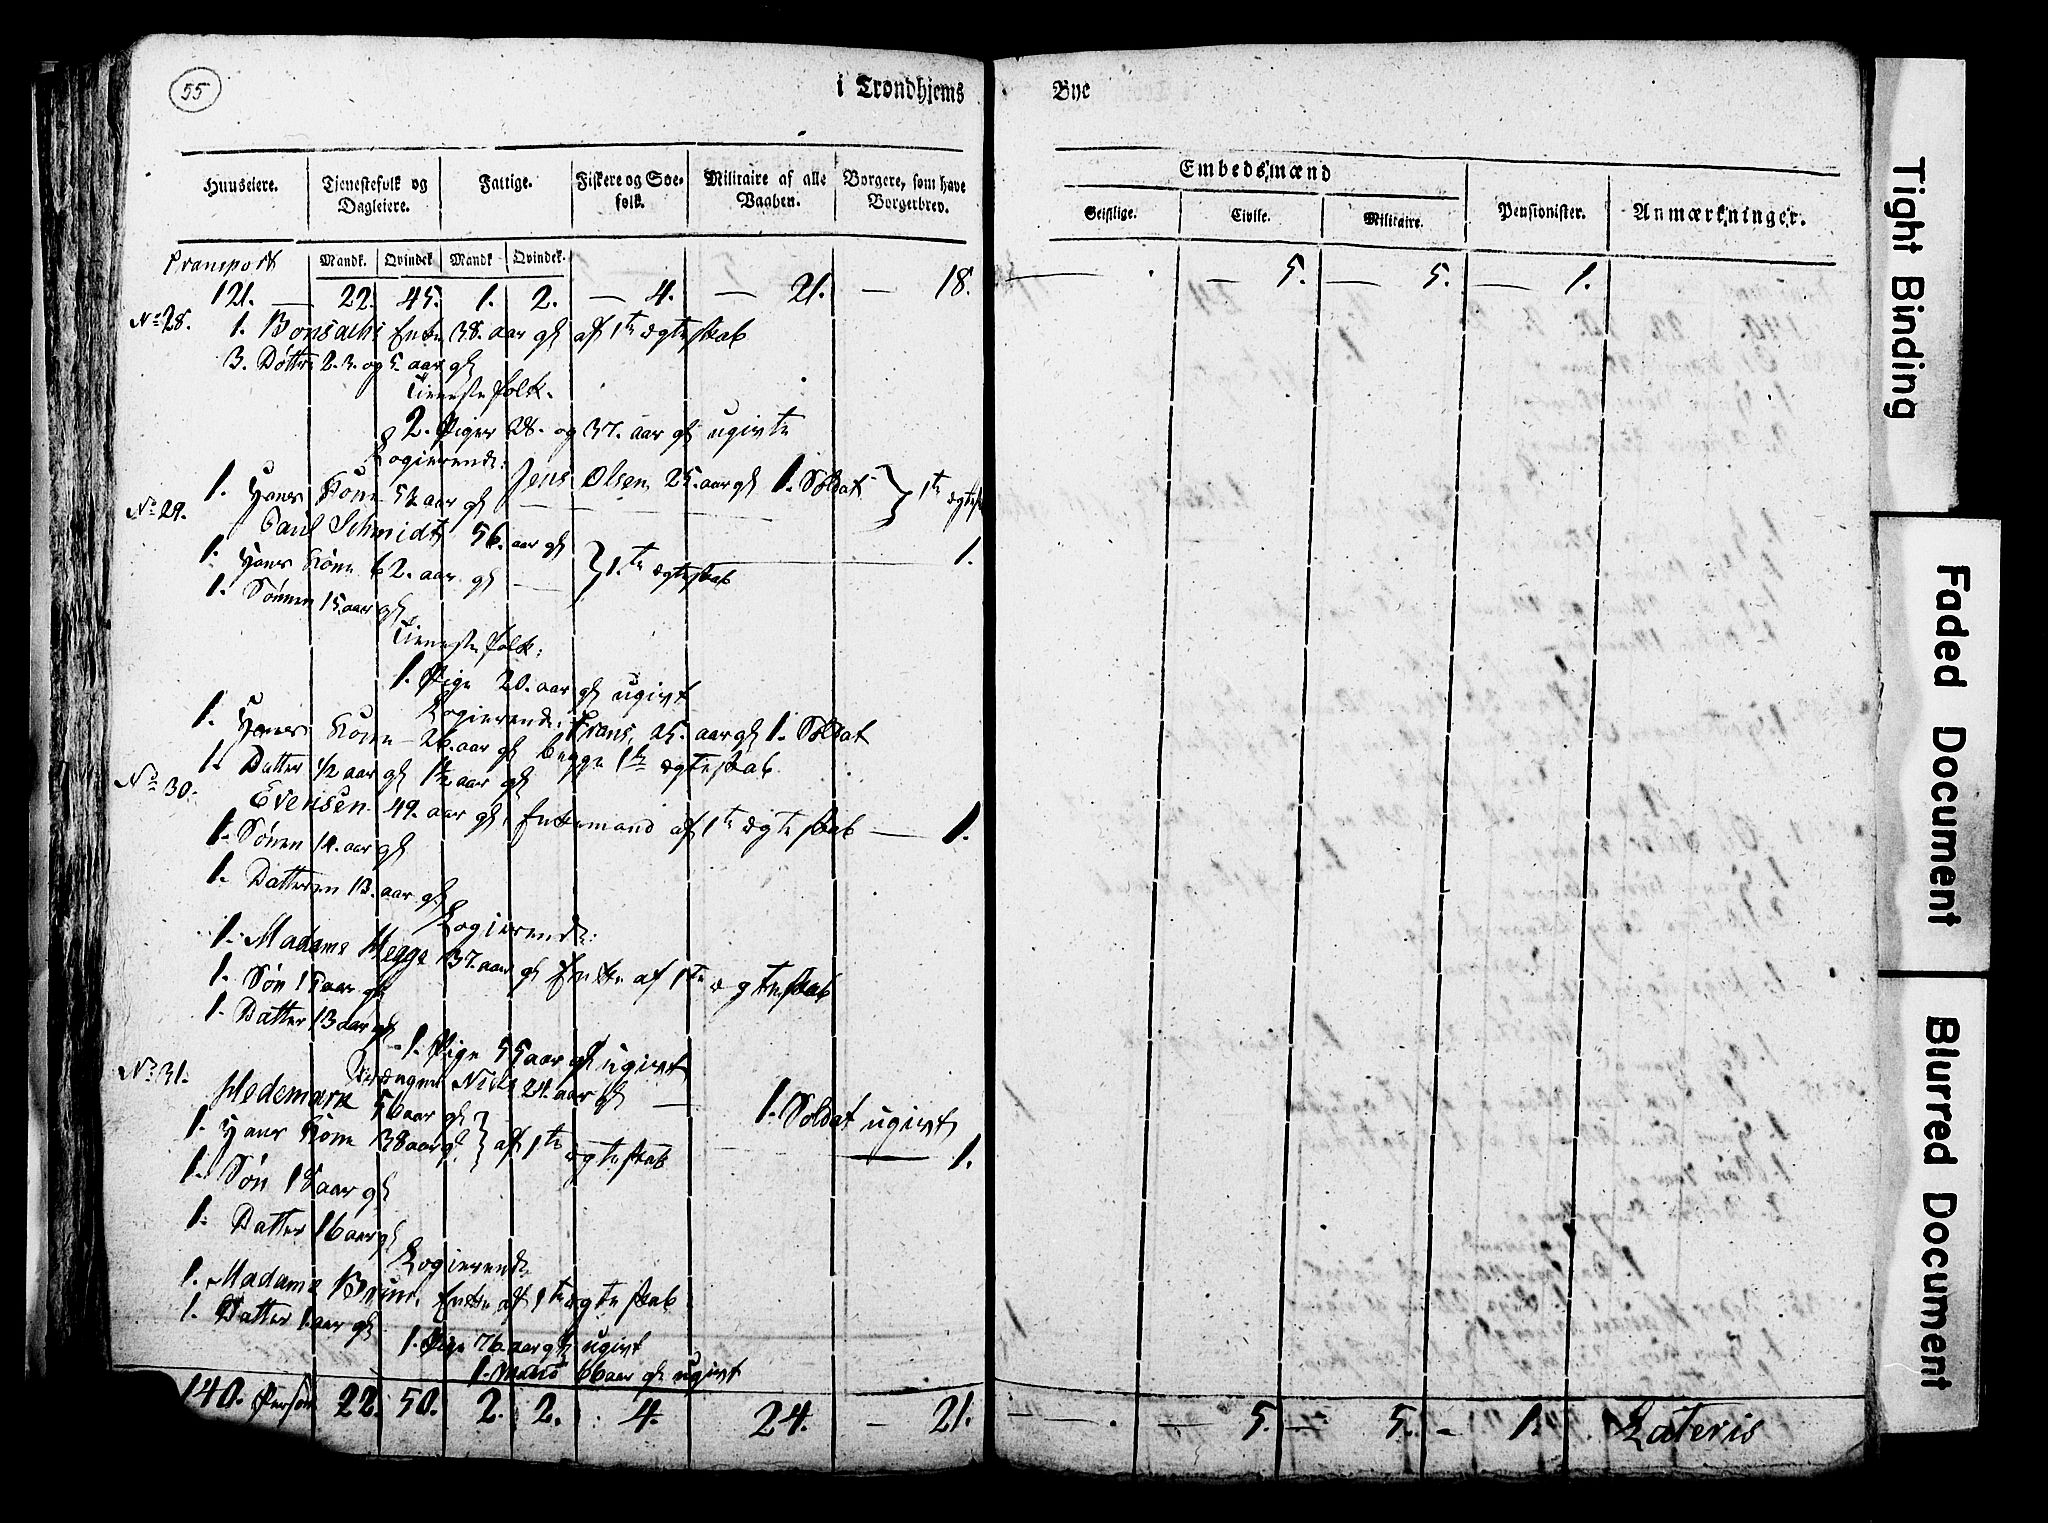 55
i Trondhjems Bye
Huuseiere. Tjenestefolk og Dagleiere. Fattige. Fiskere og Søefolk. Militaire af alle Vaaben. Borgere, som have Borgerbrev.
Embedsmænd
Geistlige. Civile. Militaire. Pensionister. Anmærkninger.
Mandk. Qvindek. Mandk. Qvindek.
Transport
121. — 22. 45. 1. 2. — 4. — 21. — 18. — . — 5. — 5. — 1.
No 28. 1. Enke 38. aar gl af 1te ægteskab
3. Døttre 2. 3. og 5. aar gl
Tienestefolk.
2. Piger 28. og 37. aar gl ugivte
Logierende:
Jens Olsen 25. aar gl 1. Soldat } 1te
1. Hans Kone 52 aar gl
No 29. Paul Schmidt 56. aar gl — 1.
1. Hans Kone 62. aar gl } 1.te ægteskab
1. Sønnen 15. aar gl
Tienestefolk:
1. Pige 20. aar gl ugivt
Logierende: Frans, 25. aar gl 1. Soldat
1. Hans Kone 26. aar gl begge 1te ægteskab
1. Datter 1/2 aar gl 1 1/2 aar gl
No 30. Evensen 49. aar gl, Enkemand af 1te ægteskab — 1.
1. Sønen 14. aar gl
1. Datteren 13. aar gl
Logierende:
1. Madame Hegge 37. aar gl Enke af 1te ægteskab
1. Søn 15 aar gl
1. Datter 13 aar gl
1. Pige 55 aar gl ugivt
Niels 24. aar gl — 1. Soldat ugivt
No 31. Hedemark 56 aar gl — 1.
1. Hans Kone 38 aar gl } af 1te ægteskab
1. Søn 18 aar gl
1. Datter 16 aar gl
Logierende
1. Madame Brun, Enke af 1te ægteskab
1. Datter 1. aar gl
1. Pige 76. aar gl ugivt
1. 66 aar gl ugivt
140. 22. 50. 2. 2. 4. 24. — 21. — . — 5. — 5. — 1. Lateris
Tight Binding
Faded Document
Blurred Document